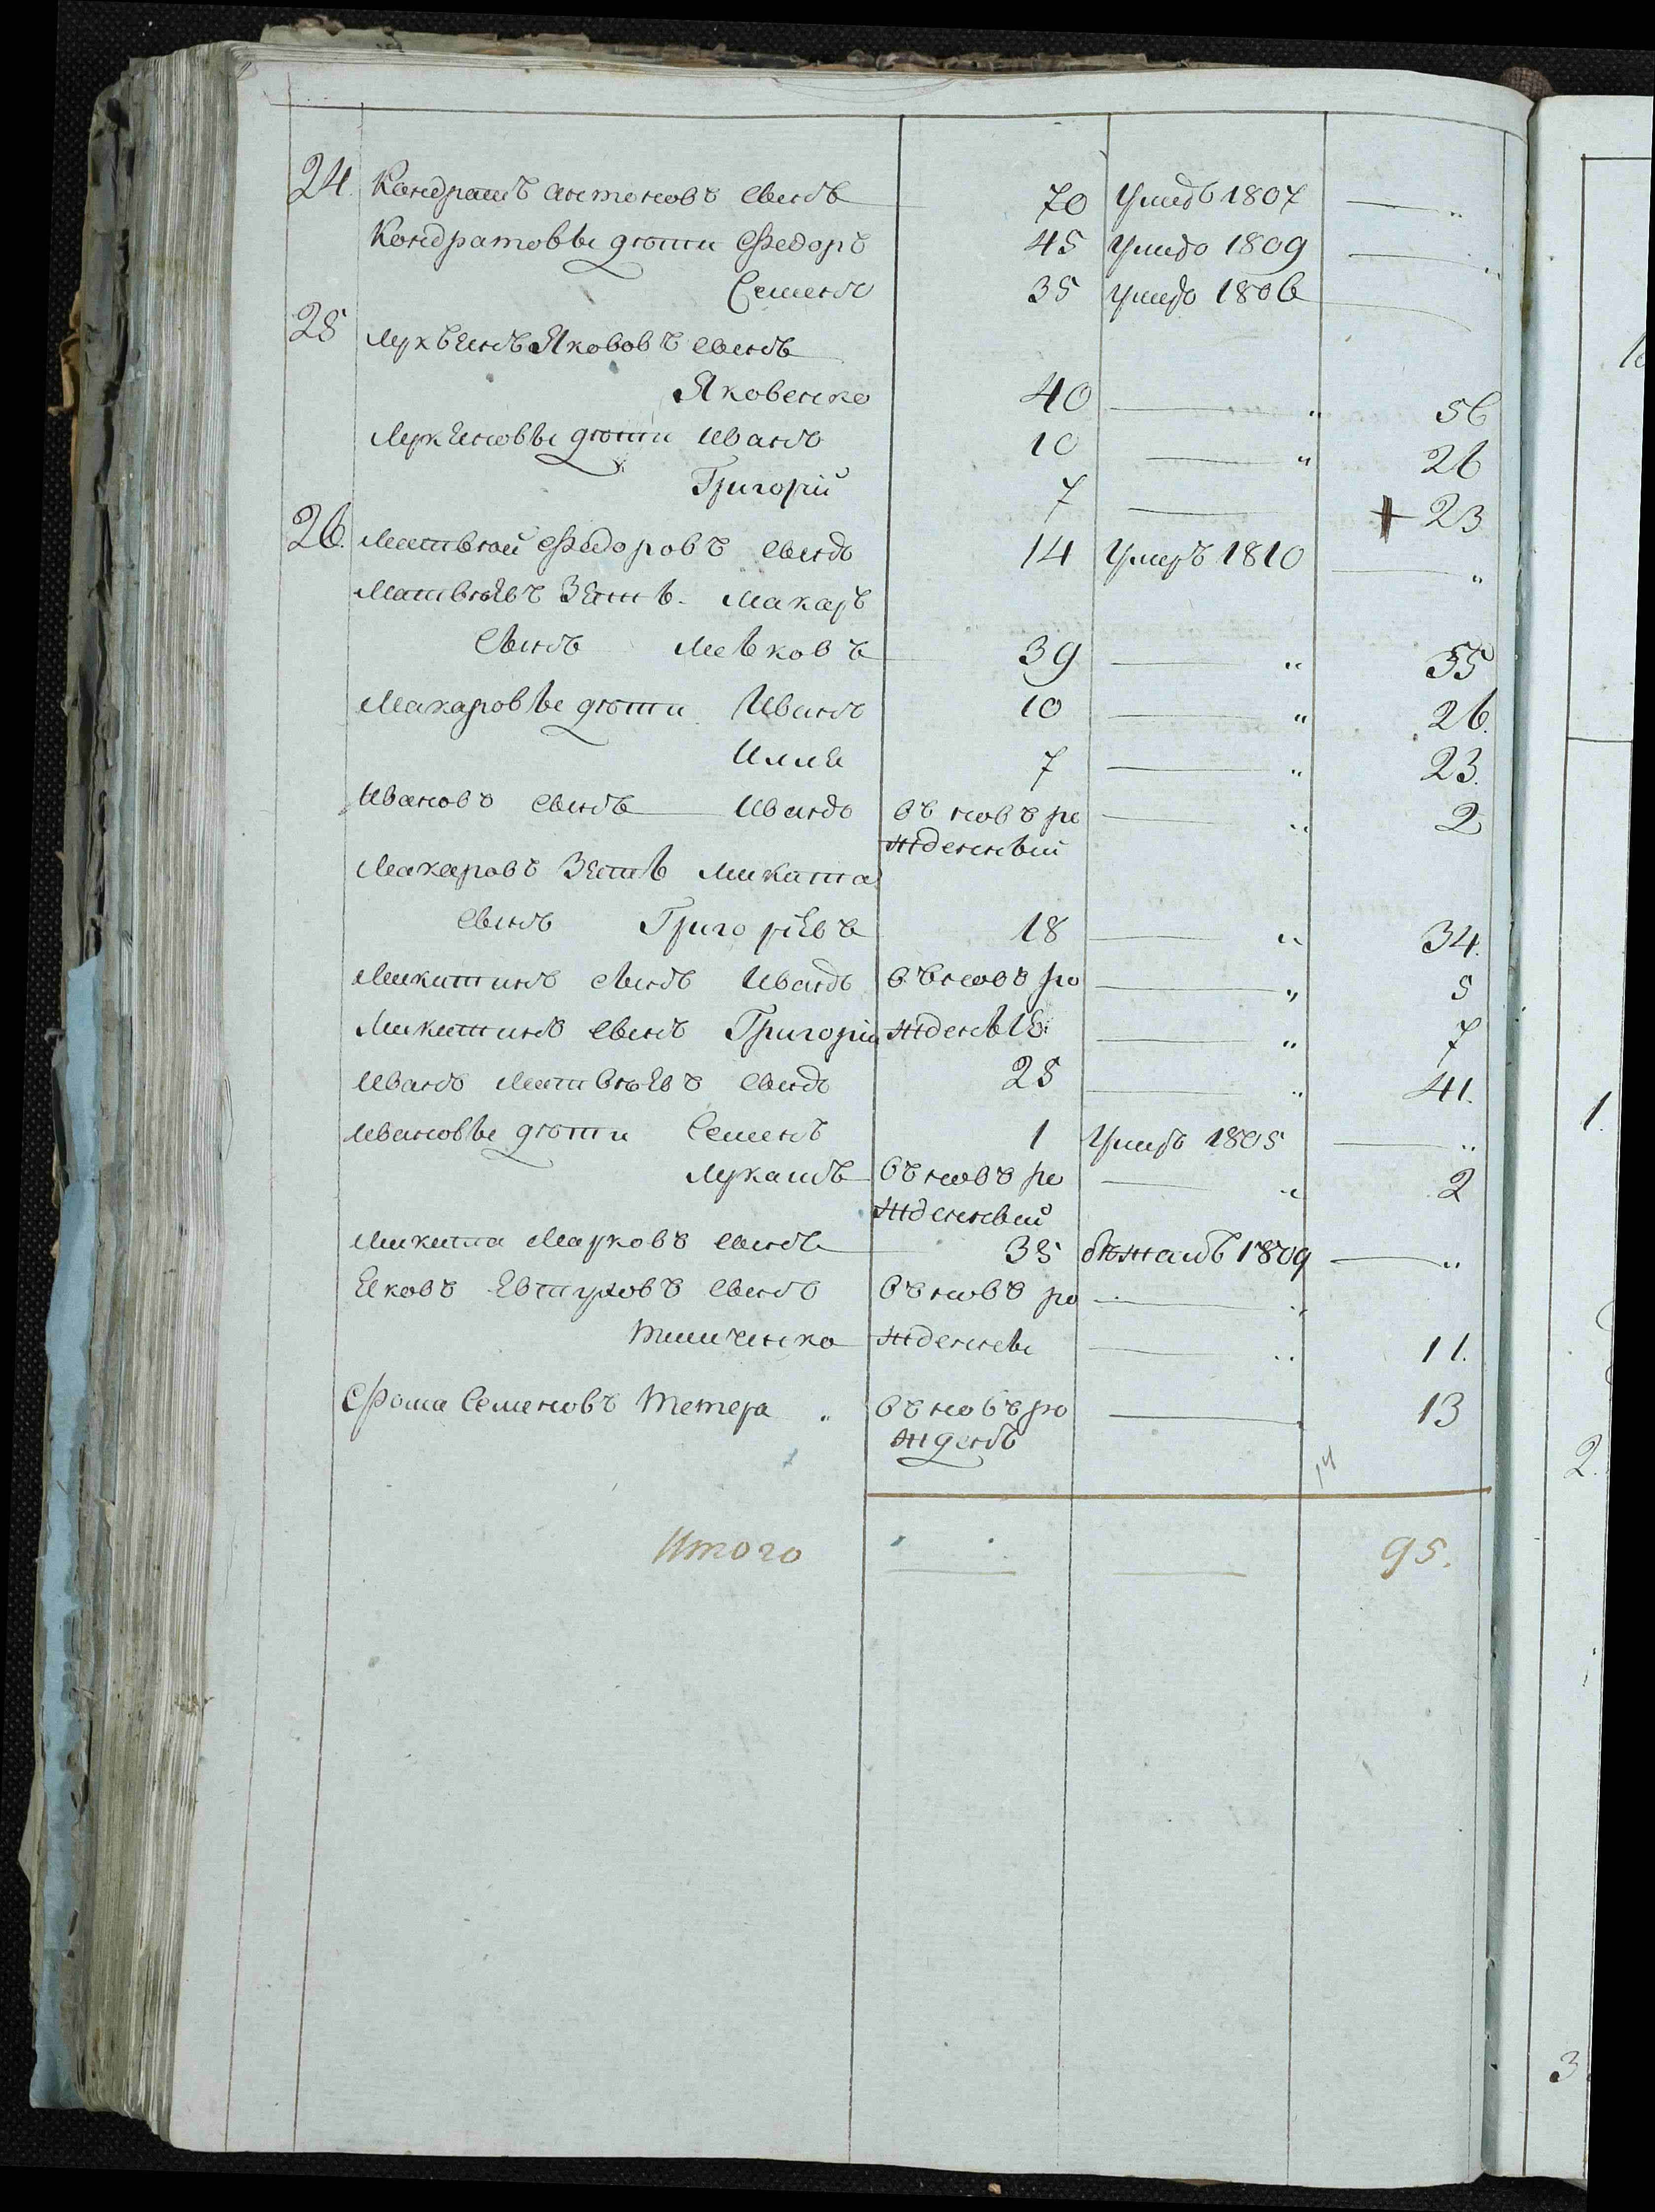 24. Кондратъ Антоновъ сынъ 70 Умеръ 1807 — "
Кондратовы дѣти Федоръ 45 Умеръ 1809 — "
Семенъ 35 Умеръ 1806 —
25 Лукьянъ Якововъ сынъ
Яковенко 40 — " 56
Лукьяновы дѣти Иванъ 10 — " 26
Григорій 7 — + 23
26. Матвѣй Федоровъ сынъ 14 Умеръ 1810 — "
Матвѣевъ зять Макаръ
сынъ Мельковъ 39 — " 55
Макаровы дѣти Иванъ 10 — " 26.
Илля 7 — " 23.
Ивановъ сынъ Иванъ въ новъ ро — " 2
жденный
Макаровъ зять Микита
сынъ Григорьевъ 18 — " 34.
Микитинъ сынъ Иванъ въ новъ ро — " 5
Микитинъ сынъ Григорій жденые — " 7
Иванъ Матвѣевъ сынъ 25 — " 41.
Ивановы дѣти Семенъ 1 Умеръ 1805 — "
Лукашъ въ новъ ро — " 2
жденный
Микита Марковъ сынъ 35 бѣжалъ 1809 — "
Яковъ Евтуховъ сынъ въ новъ ро — "
Тимченко жденны — " 11.
Фома Семеновъ Тетера " въ новъ ро — 13
жденъ
14
Итого — — 95.
1.
2.
3.